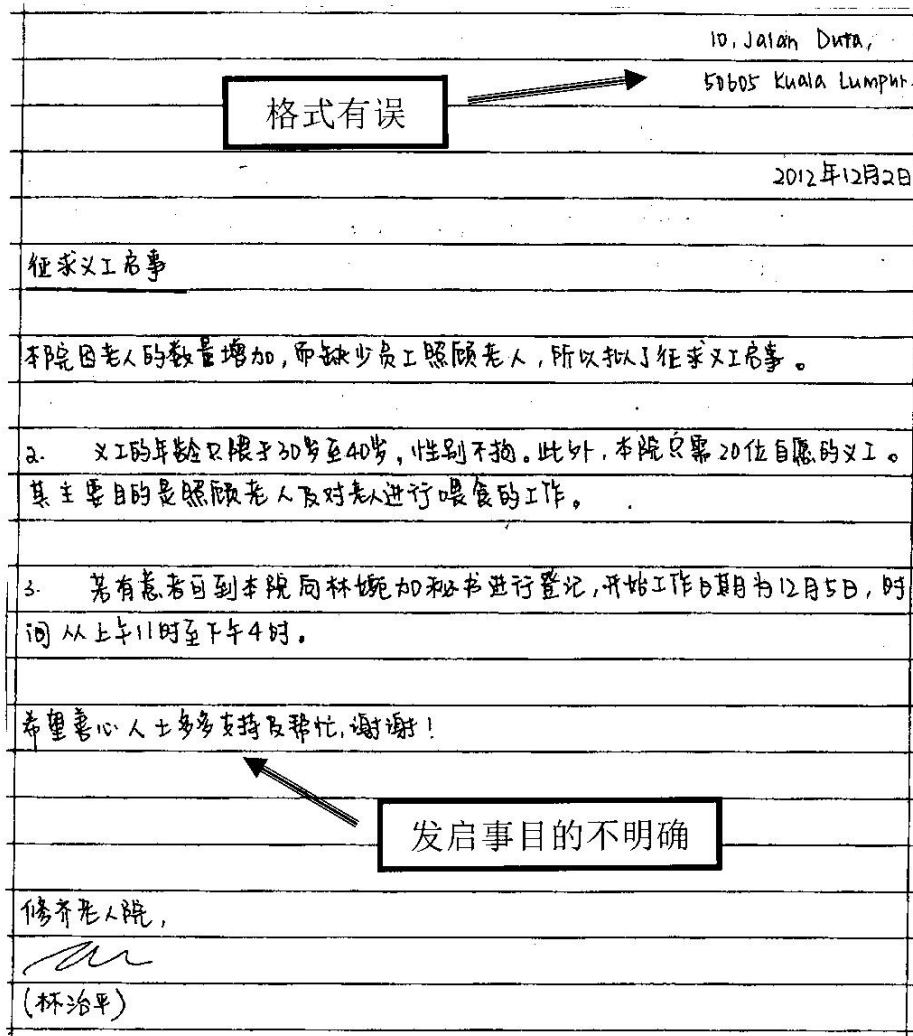 10, Jalan Duta,
50605 Kuala Lumpur.
格式有误
2012年12月2日
征求义工启事
本院因老人的数量增加,而缺少员工照顾老人,所以拟了征求义工启事。
2. 义工的年龄只限于30岁至40岁,性别不拘。此外,本院只需20位自愿的义工。
其主要目的是照顾老人及对老人进行喂食的工作。
3. 若有意者可到本院向林婉加秘书进行登记,开始工作日期为12月5日,时
间从上午11时至下午4时。
希望善心人士多多支持及帮忙,谢谢!
发启事目的不明确
修齐老人院,
(林治平)